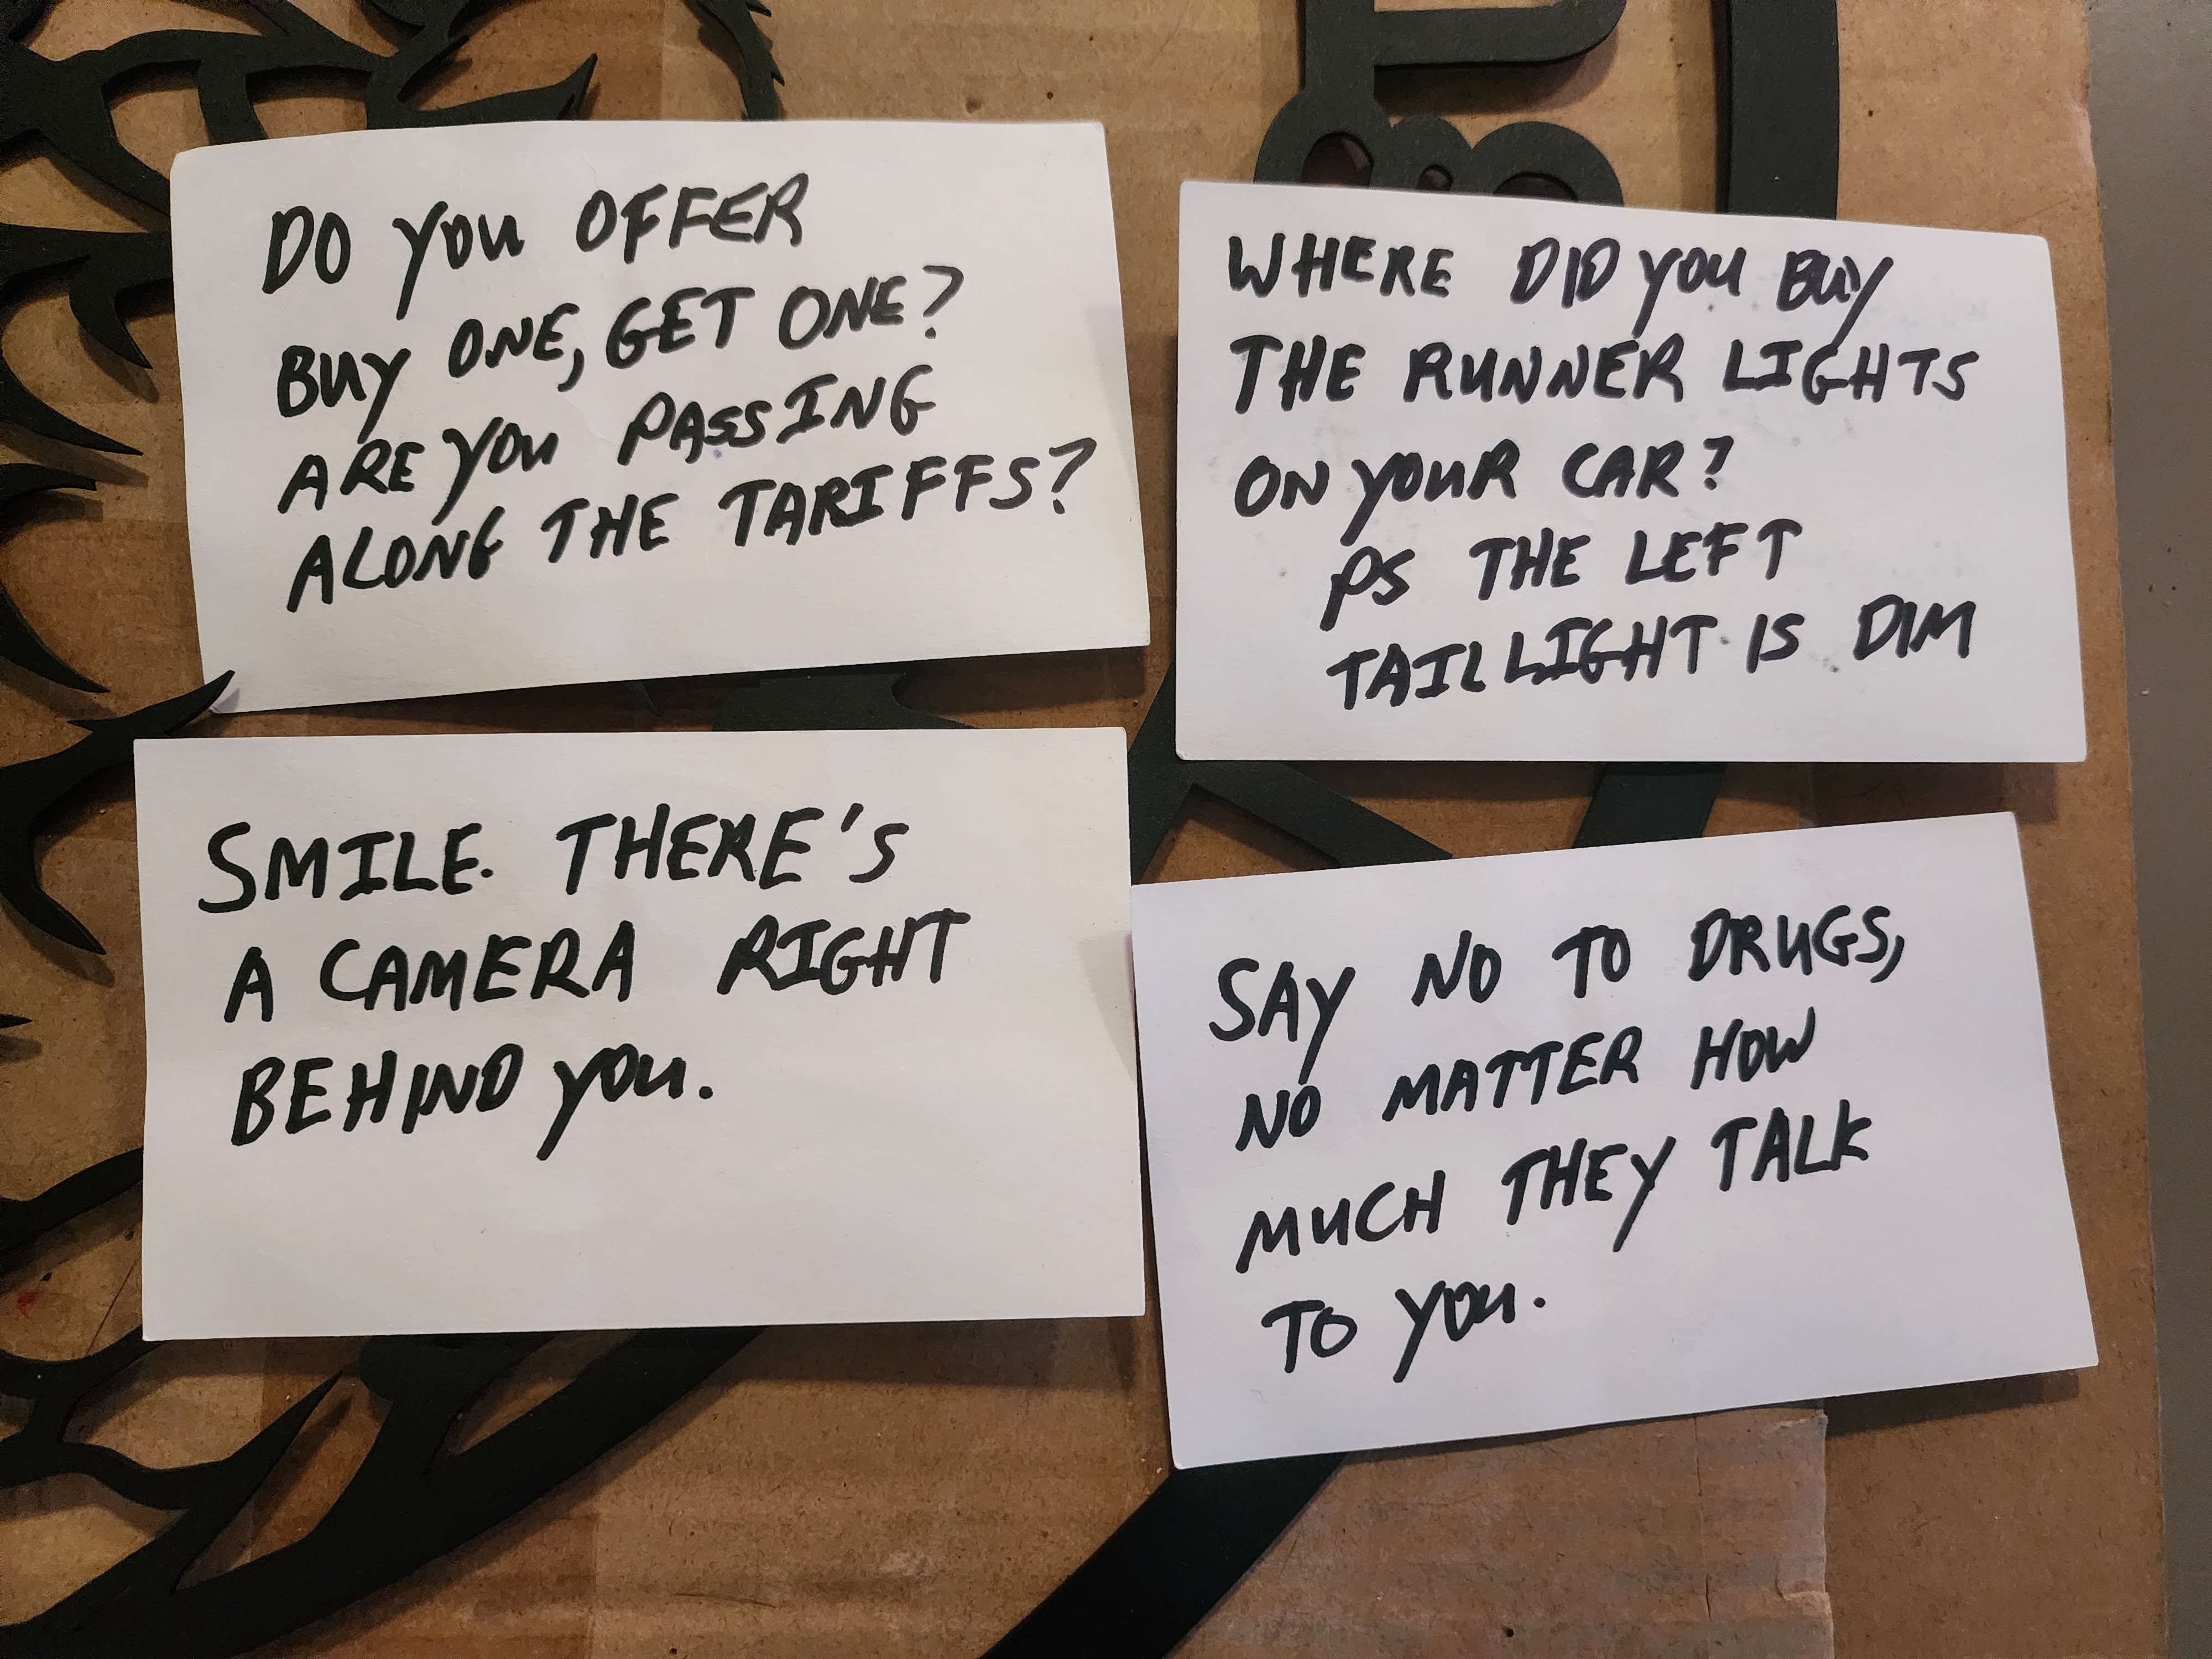 DO YOU OFFER
BUY ONE, GET ONE?
ARE YOU PASSING
ALONG THE TARIFFS?
WHERE DID YOU BUY
THE RUNNER LIGHTS
ON YOUR CAR?
PS THE LEFT
TAILLIGHT IS DIM
SMILE. THERE'S
A CAMERA RIGHT
BEHIND YOU.
SAY NO TO DRUGS,
NO MATTER HOW
MUCH THEY TALK
TO YOU.